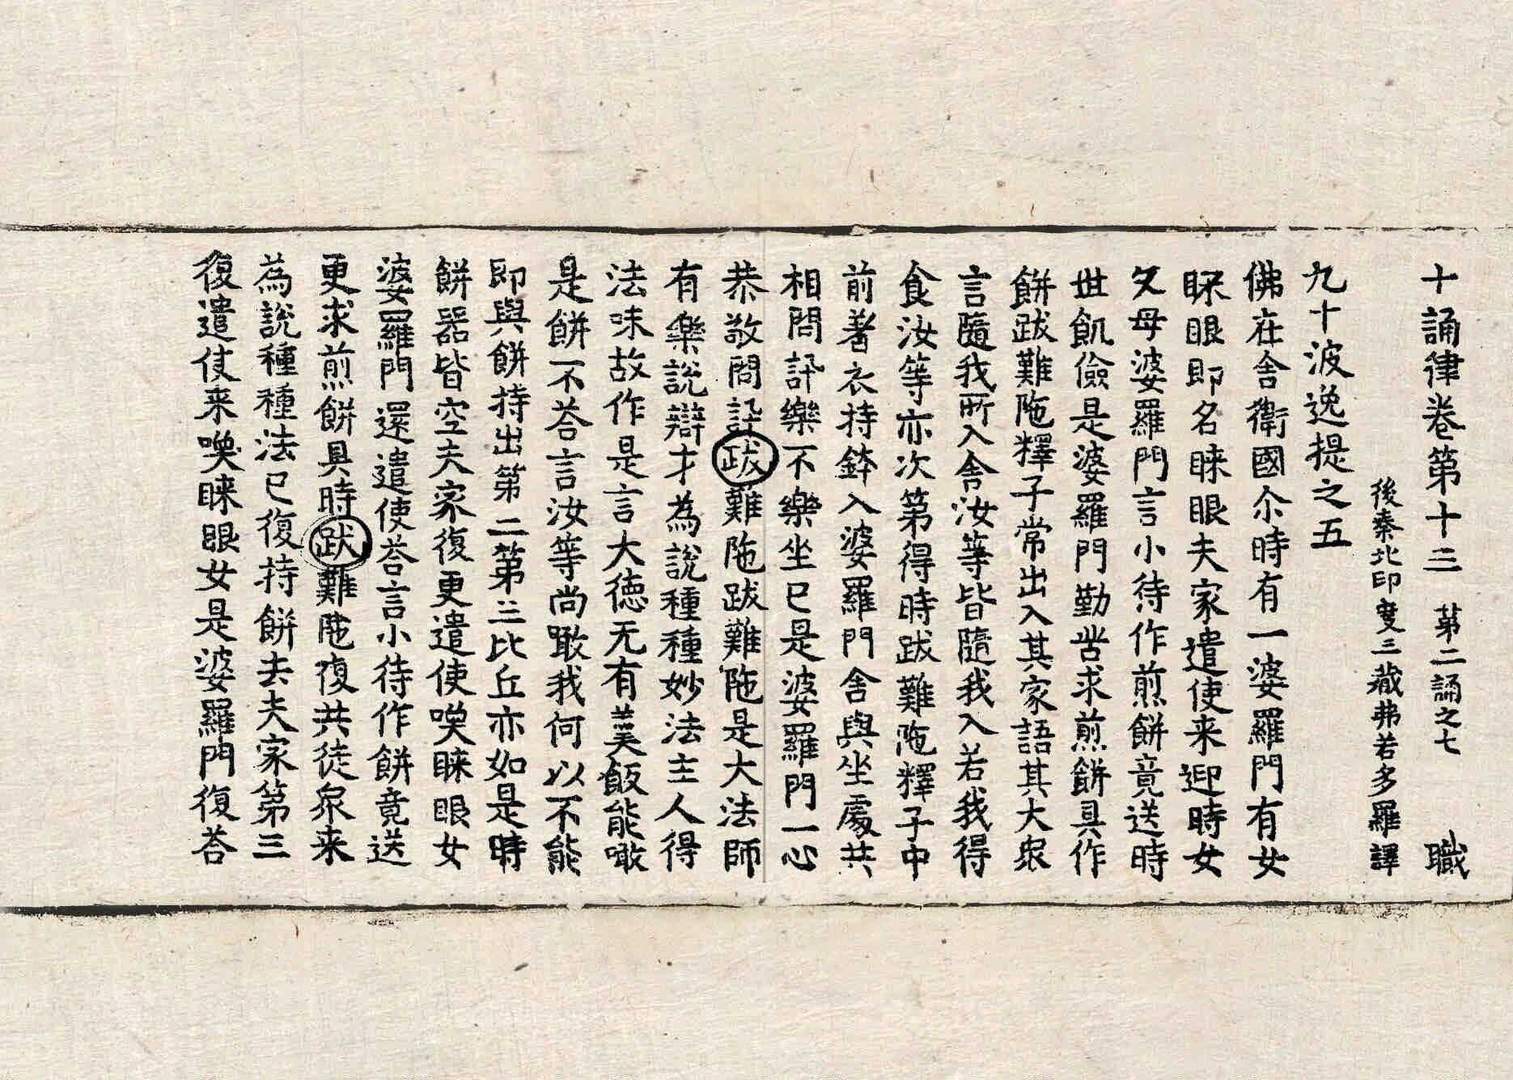 十誦律卷第十三 第二誦之七 職
後秦北印度三藏弗若多羅譯
九十波逸提之五
佛在舍衛國尒時有一婆羅門有女
睞眼即名睞眼夫家遣使来迎時女
父母婆羅門言小待作煎餅竟送時
世飢儉是婆羅門勤苦求煎餅具作
餅跋難陁釋子常出入其家語其大衆
言隨我所入舍汝等皆隨我入若我得
食汝等亦次第得時跋難陁釋子中
前著衣持鉢入婆羅門舍與坐處共
相問訊樂不樂坐已是婆羅門一心
恭敬問訊跋難陁跋難陁是大法師
有樂說辯才為說種種妙法主人得
法味故作是言大德无有美飯能噉
是餅不荅言汝等尚噉我何以不能
即與餅持出第二第三比丘亦如是時
餅器皆空夫家復更遣使喚睞眼女
婆羅門還遣使荅言小待作餅竟送
更求煎餅具時跋難陁復共徒衆来
為說種種法已復持餅去夫家第三
復遣使来喚睞眼女是婆羅門復荅